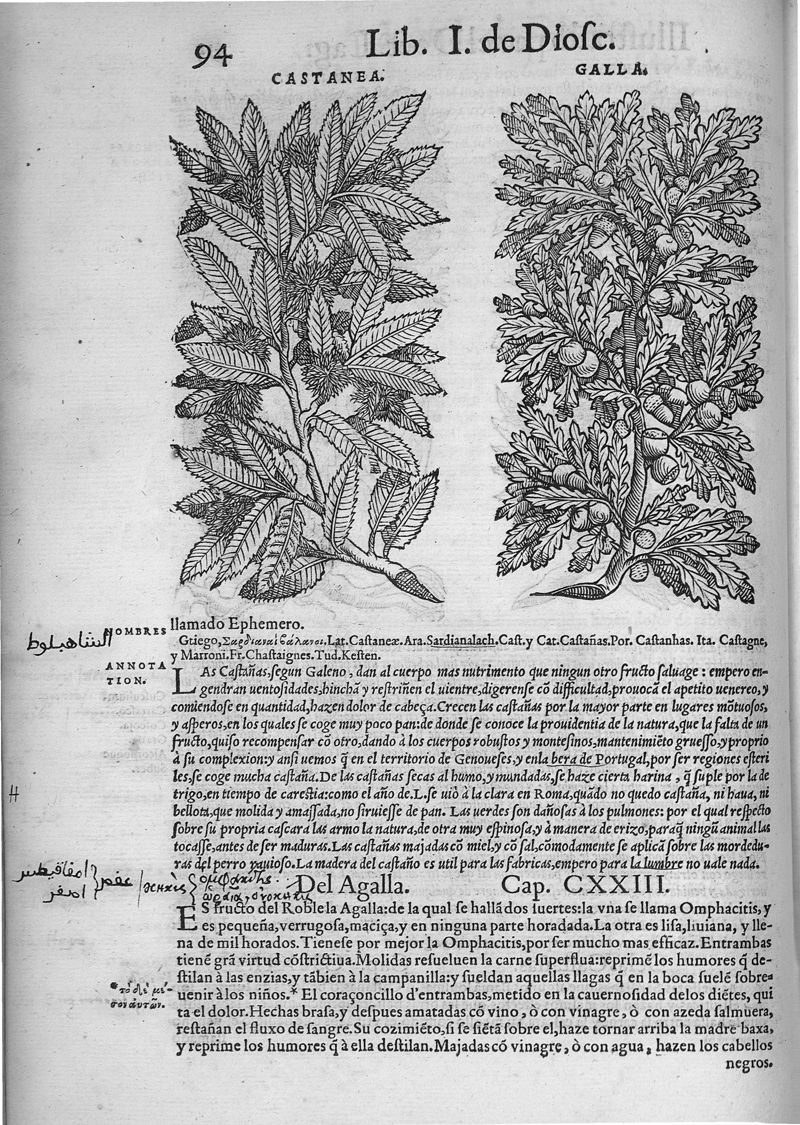 94
Lib. I. de Dioſc.
CASTANEA.
GALLA.
llamado Ephemero.
NOMBRES
الشاهبلوط
Griego, Σαρδιαναὶ βάλανοι. Lat. Castaneæ. Ara. Sardianalach. Caſt. y Cat. Caſtañas. Por. Castanhas. Ita. Castagne,
y Marroni. Fr. Chaſtaignes. Tud. Keſten.
ANNOTA
TION.
LAS Caſtañas, ſegun Galeno, dan al cuerpo mas nutrimento que ningun otro fructo ſaluage: empero en-
gendran uentoſidades, hinchã y reſtriñen el uientre, digerenſe cõ difficultad, prouocã el apetito uenereo, y
comiendoſe en quantidad, hazen dolor de cabeça. Crecen las caſtañas por la mayor parte en lugares mõtuoſos,
y aſperos, en los quales ſe coge muy poco pan: de donde ſe conoce la prouidentia de la natura, que la falta de un
fructo, quiſo recompenſar cõ otro, dando à los cuerpos robuſtos y monteſinos, mantenimiẽto grueſſo, y proprio
à ſu complexion: y anſi uemos q̃ en el territorio de Genoueſes, y enla bera de Portugal, por ser regiones eſteri
les, ſe coge mucha caſtaña. De las caſtañas secas al humo, y mundadas, ſe haze cierta harina, q̃ ſuple por la de
trigo, en tiempo de careſtia: como el año de. L. ſe uiò à la clara en Roma, quãdo no quedo caſtaña, ni haua, ni
bellota, que molida y amaſſada, no ſiruieſſe de pan. Las uerdes ſon dañoſas à los pulmones: por el qual reſpecto
ſobre ſu propria caſcara las armo la natura, de otra muy eſpinoſa, y à manera de erizo, paraq̃ ningũ animal las
tocaſſe, antes de ſer maduras. Las caſtañas majadas cõ miel, y cõ ſal, cõmodamente ſe aplicã ſobre las mordedu-
ras del perro rauioſo. La madera del caſtaño es util para las fabricas, empero para la lumbre no uale nada.
عفص
اصفر
ὀμφακῖτις
Del Agalla. Cap. CXXIII.
ES fructo del Roble la Agalla: de la qual ſe hallã dos ſuertes: la vna ſe llama Omphacitis, y
es pequeña, verrugoſa, maciça, y en ninguna parte horadada. La otra es liſa, liuiana, y lle-
na de mil horados. Tieneſe por mejor la Omphacitis, por ſer mucho mas efficaz. Entrambas
tienẽ grã virtud cõſtrictiua. Molidas reſueluen la carne ſuperflua: reprimẽ los humores q̃ de-
ſtilan à las enzias, y tãbien à la campanilla: y ſueldan aquellas llagas q̃ en la boca ſuelẽ ſobre-
uenir à los niños.* El coraçoncillo d'entrambas, metido en la cauernoſidad delos diẽtes, qui
ta el dolor. Hechas braſa, y deſpues amatadas cõ vino, ò con vinagre, ò con azeda ſalmuera,
* τὸ δὲ μέ-
σον αὐτῶν.
reſtañan el fluxo de ſangre. Su cozimiẽto, ſi ſe ſiẽtã ſobre el, haze tornar arriba la madre baxa,
y reprime los humores q̃ à ella deſtilan. Majadas cõ vinagre, ò con agua, hazen los cabellos
negros.